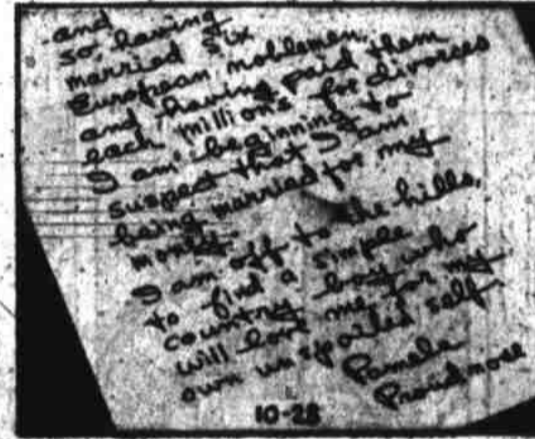 and
so, having
married six
European noblemen,
and having paid them
each millions for divorces
I am beginning to
suspect that I am
being married for my
money.
I am off to the hills,
to find a simple
country boy who
will love me for my
own unspoiled self.
Pamela
Proudmore
10-28